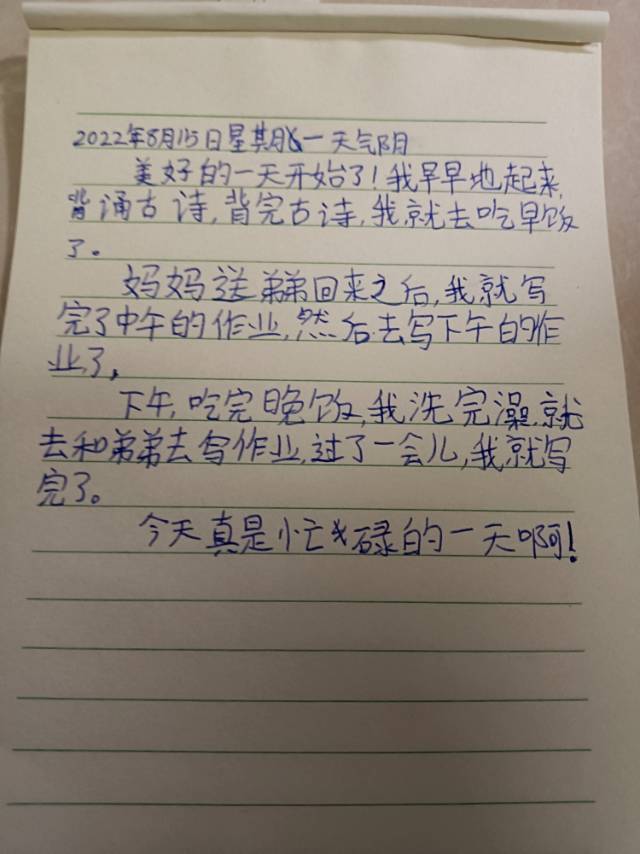 2022年8月15日星期一天气阴
美好的一天开始了!我早早地起来,
背诵古诗,背完古诗,我就去吃早饭
了。
妈妈送弟弟回来之后,我就写
完了中午的作业,然后去写下午的作
业了,
下午,吃完晚饭,我洗完澡,就
去和弟弟去写作业,过了一会儿,我就写
完了。
今天真是忙碌的一天啊!